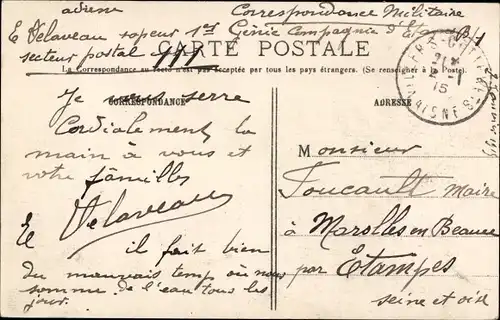 adresse
Correspondance Militaire
E Velaveau sapeur 1er Génie Compagnie d'
secteur postal
CARTE POSTALE
La Correspondance au recto n'est pas acceptée par tous les pays étrangers. (Se renseigner à la Poste).
15
AISNE
CORRESPONDANCE
ADRESSE
Je vous serre
Cordialement la
main à vous et
votre familles
E Velaveau
il fait bien
du mauvais temp où nous
somme de l'eau tous les
jour.
Monsieur
Foucault maire
à Marolles en Beauce
par Etampes
seine et oise